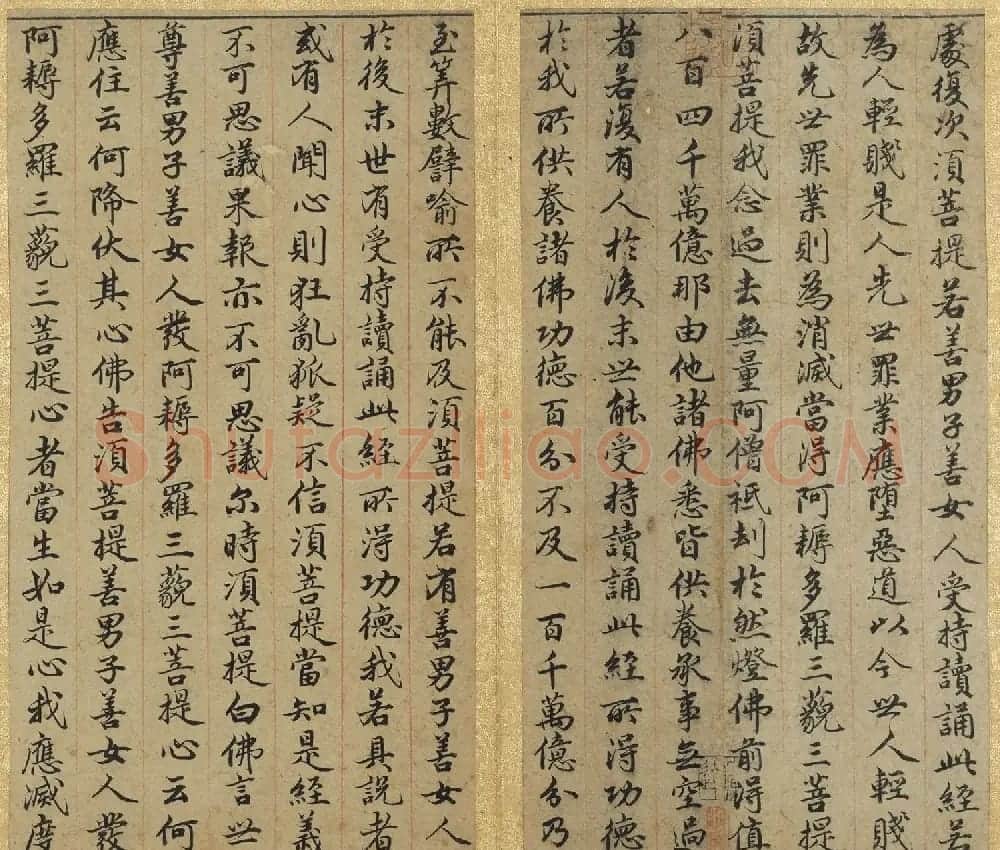 處復次須菩提若善男子善女人受持讀誦此經若
為人輕賤是人先世罪業應墮惡道以今世人輕賤
故先世罪業則為消滅當得阿耨多羅三藐三菩提
須菩提我念過去無量阿僧祇劫於然燈佛前得值
八百四千萬億那由他諸佛悉皆供養承事无空過
者若復有人於後末世能受持讀誦此經所得功德
於我所供養諸佛功德百分不及一百千萬億分乃
至筭數譬喻所不能及須菩提若有善男子善女人
於後末世有受持讀誦此經所得功德我若具說者
或有人聞心則狂亂狐疑不信須菩提當知是經義
不可思議果報亦不可思議尒時須菩提白佛言世
尊善男子善女人發阿耨多羅三藐三菩提心云何
應住云何降伏其心佛告須菩提善男子善女人發
阿耨多羅三藐三菩提心者當生如是心我應滅度
Shutaziliao.COM